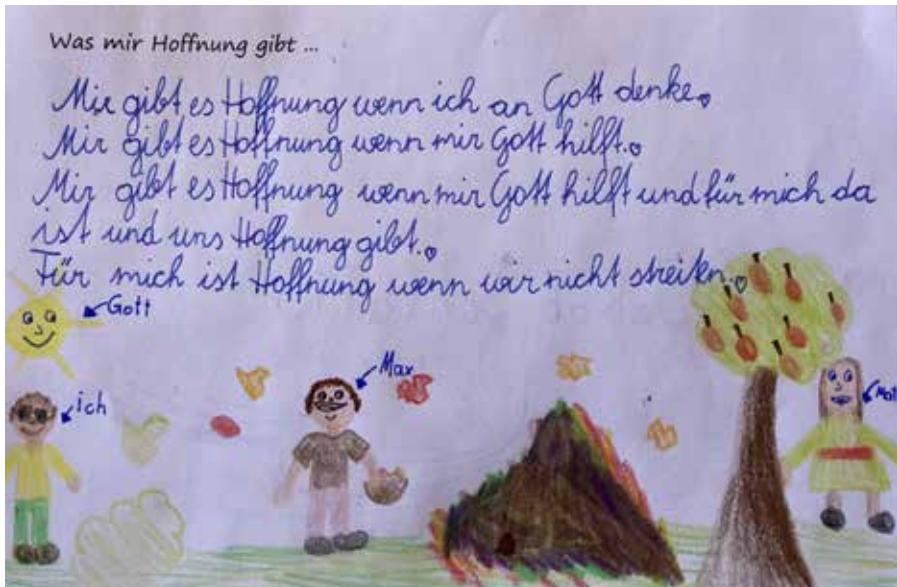 Was mir Hoffnung gibt ...
Mir gibt es Hoffnung wenn ich an Gott denke.
Mir gibt es Hoffnung wenn mir Gott hilft.
Mir gibt es Hoffnung wenn mir Gott hilft und für mich da
ist und uns Hoffnung gibt.
Für mich ist Hoffnung wenn wir nicht streiten.
Gott
Max
ich